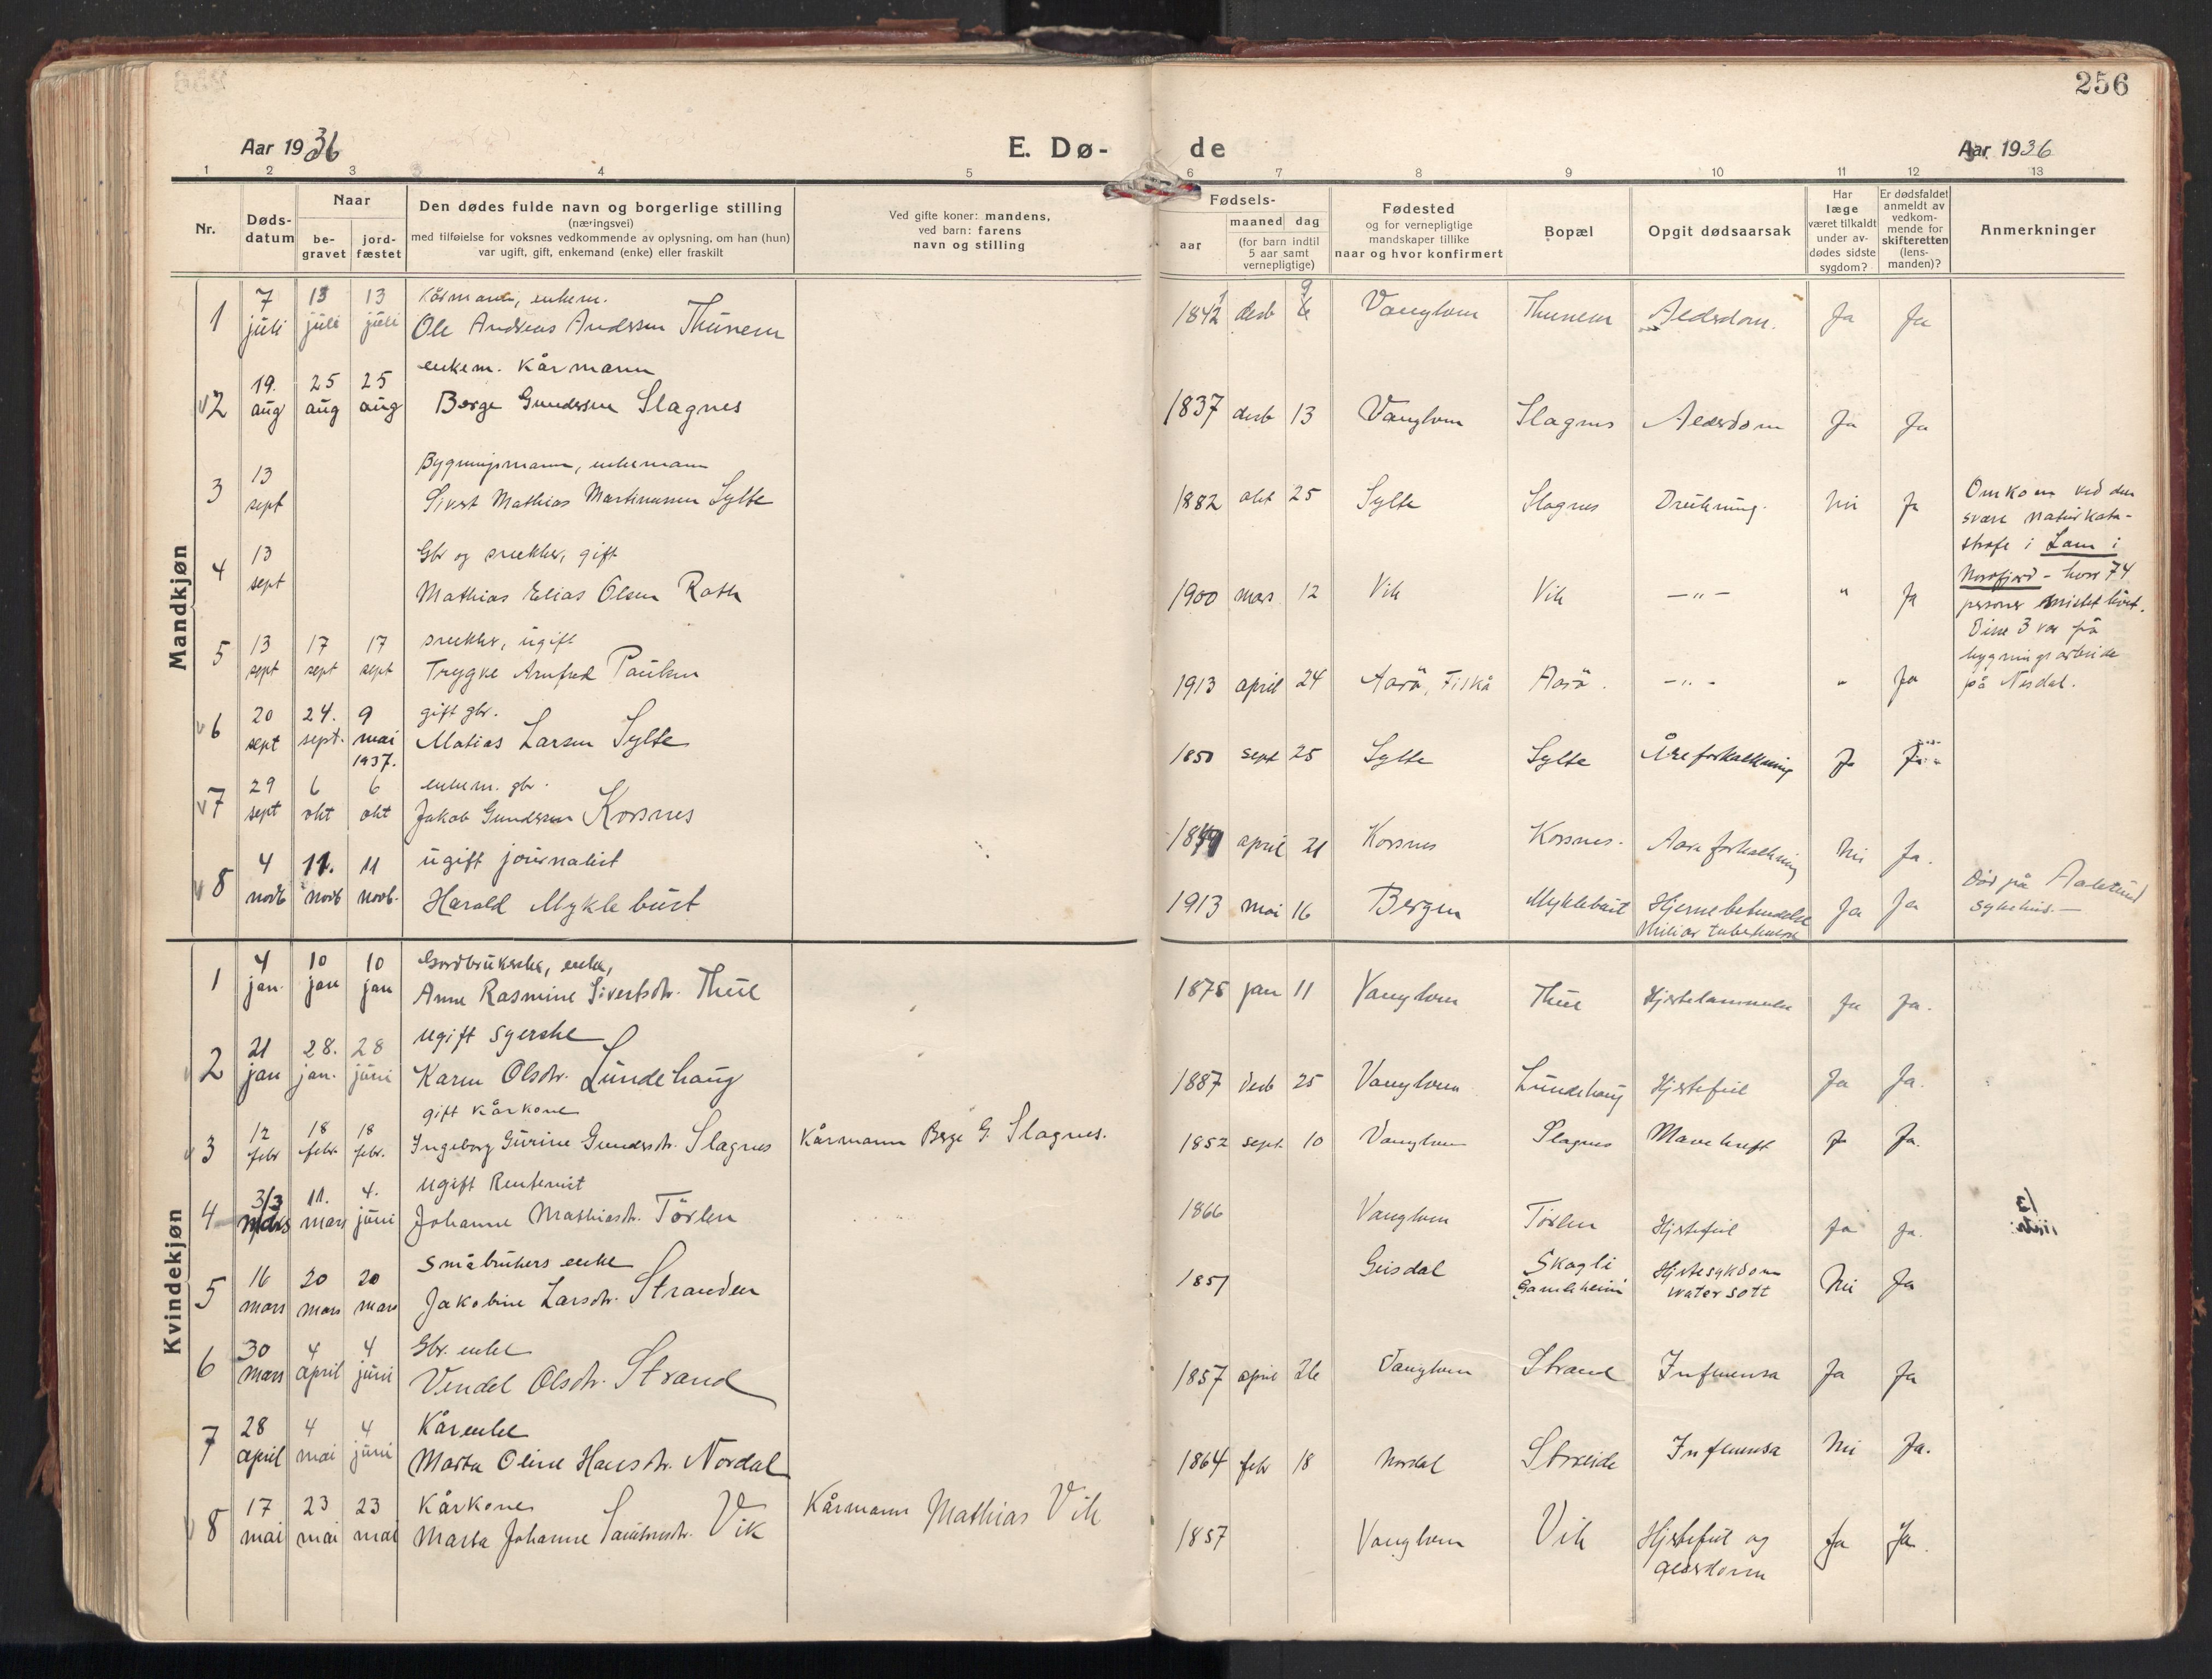 256
Aar 1936
E. Dø-
de
Aar 1936
1 2 3 4 5 6 7 8 9 10 11 12 13
Nr.
Døds-
datum
Naar
be-
gravet
jord-
fæstet
Den dødes fulde navn og borgerlige stilling
(næringsvei)
med tilføielse for voksnes vedkommende av oplysning, om han (hun)
var ugift, gift, enkemand (enke) eller fraskilt
Ved gifte koner: mandens,
ved barn: farens
navn og stilling
Fødsels-
aar
maaned dag
(for barn indtil
5 aar samt
vernepligtige)
Fødested
og for vernepligtige
mandskaper tillike
naar og hvor konfirmert
Bopæl
Opgit dødsaarsak
Har
læge
været tilkaldt
under av-
dødes sidste
sygdom?
Er dødsfaldet
anmeldt av
vedkom-
mende for
skifteretten
(lens-
manden)?
Anmerkninger
Mandkjøn
Kårmann, enkem.
1 7 juli 13 juli 13 juli Ole Andreas Anderssen Thunem desb Thunem Alderdom. Ja Ja
enkem. Kårmann
2 19. aug 25 aug 25 aug Børge Gunderssen Slagnes 1837 desb 13 Slagnes Alderdom Ja Ja
Bygningsmann, enkemann
3 13 sept Sivert Mathias Martinussen Sylte 1882 okt 25 Sylte Slagnes Drukning. Nei Ja
Gbr og snekker, gift
4 13 sept Mathias Elias Olsen 1900 mars 12 Vik Vik — " — " Ja
snekker, ugift
5 13 sept 17 sept 17 sept Trygve Arnfred Paulsen 1913 april 24 Aarö, Fiskå Aarö. — " — " Ja
Omkom ved den
svære naturkata-
strofe i Loen i
Nordfjord – hvor 74
personer mistet livet.
Disse 3 var på
bygningsarbeide
på Nesdal.
gift gbr.
6 20 sept 24. sept. 9 mai 1937. Matias Larsen Sylte 1850 sept 25 Sylte Sylte Åreforkalkning Ja Ja
enkem. gbr.
7 29 sept 6 okt 6 okt Jakob Gunderssen Korsnes april 21 Korsnes Korsnes. Aareforkalkning Nei Ja.
ugift journalist
8 4 novb 11. novb 11 novb. Harald Myklebust 1913 mai 16 Bergen Myklebust Hjernebetendelse Ja Ja Død på Aalesund
Miliær tuberkulose sykehus. —
Kvindekjøn
Gardbrukerske, enke,
1 4 jan. 10 jan 10 jan Anne Rasmine Sivertsdtr. Thue 1875 jan 11 Thue Hjertelammelse Ja Ja.
Ugift syerske
2 21 jan 28. jan. 28 juni Karen Olsdtr. Lundehaug 1887 desb 25 Lundehaug Hjertefeil Ja Ja.
gift Kårkone
3 12 febr 18 febr 18 febr. Ingeborg Gurine Gundersdtr. Slagnes Kårmann Børge G. Slagnes. 1852 sept. 10 Slagnes Mavekreft Ja Ja.
Ugift Rentenist
4 3/3 mars 11. mars 4. juni Johanne Mathiasdtr. Törlen 1866 Törlen Hjertefeil Ja Ja.
Småbrukers enke
5 16 mars 20 mars 20 mars Jakobine Larsdtr. Stranden 1851 Geisdal Skogli Hjertesykdom Nei Ja
Gamleheim watersott
Gbr. enke
6 30 mars 4 april 4 juni Vendel Olsdtr. Strand 1857 april 26 Strand Influensa Ja Ja
Kårenke
7 28 april 4 mai 4 juni Marta Oline Hansdtr. Nordal 1864 febr 18 Nordal Storeide Influensa Nei Ja.
Kårkone
8 17 mai 23 mai 23 mai Marta Johanne Vik Kårmann Mathias Vik 1857 Vik Hjertefeil og Ja Ja.
alderdom